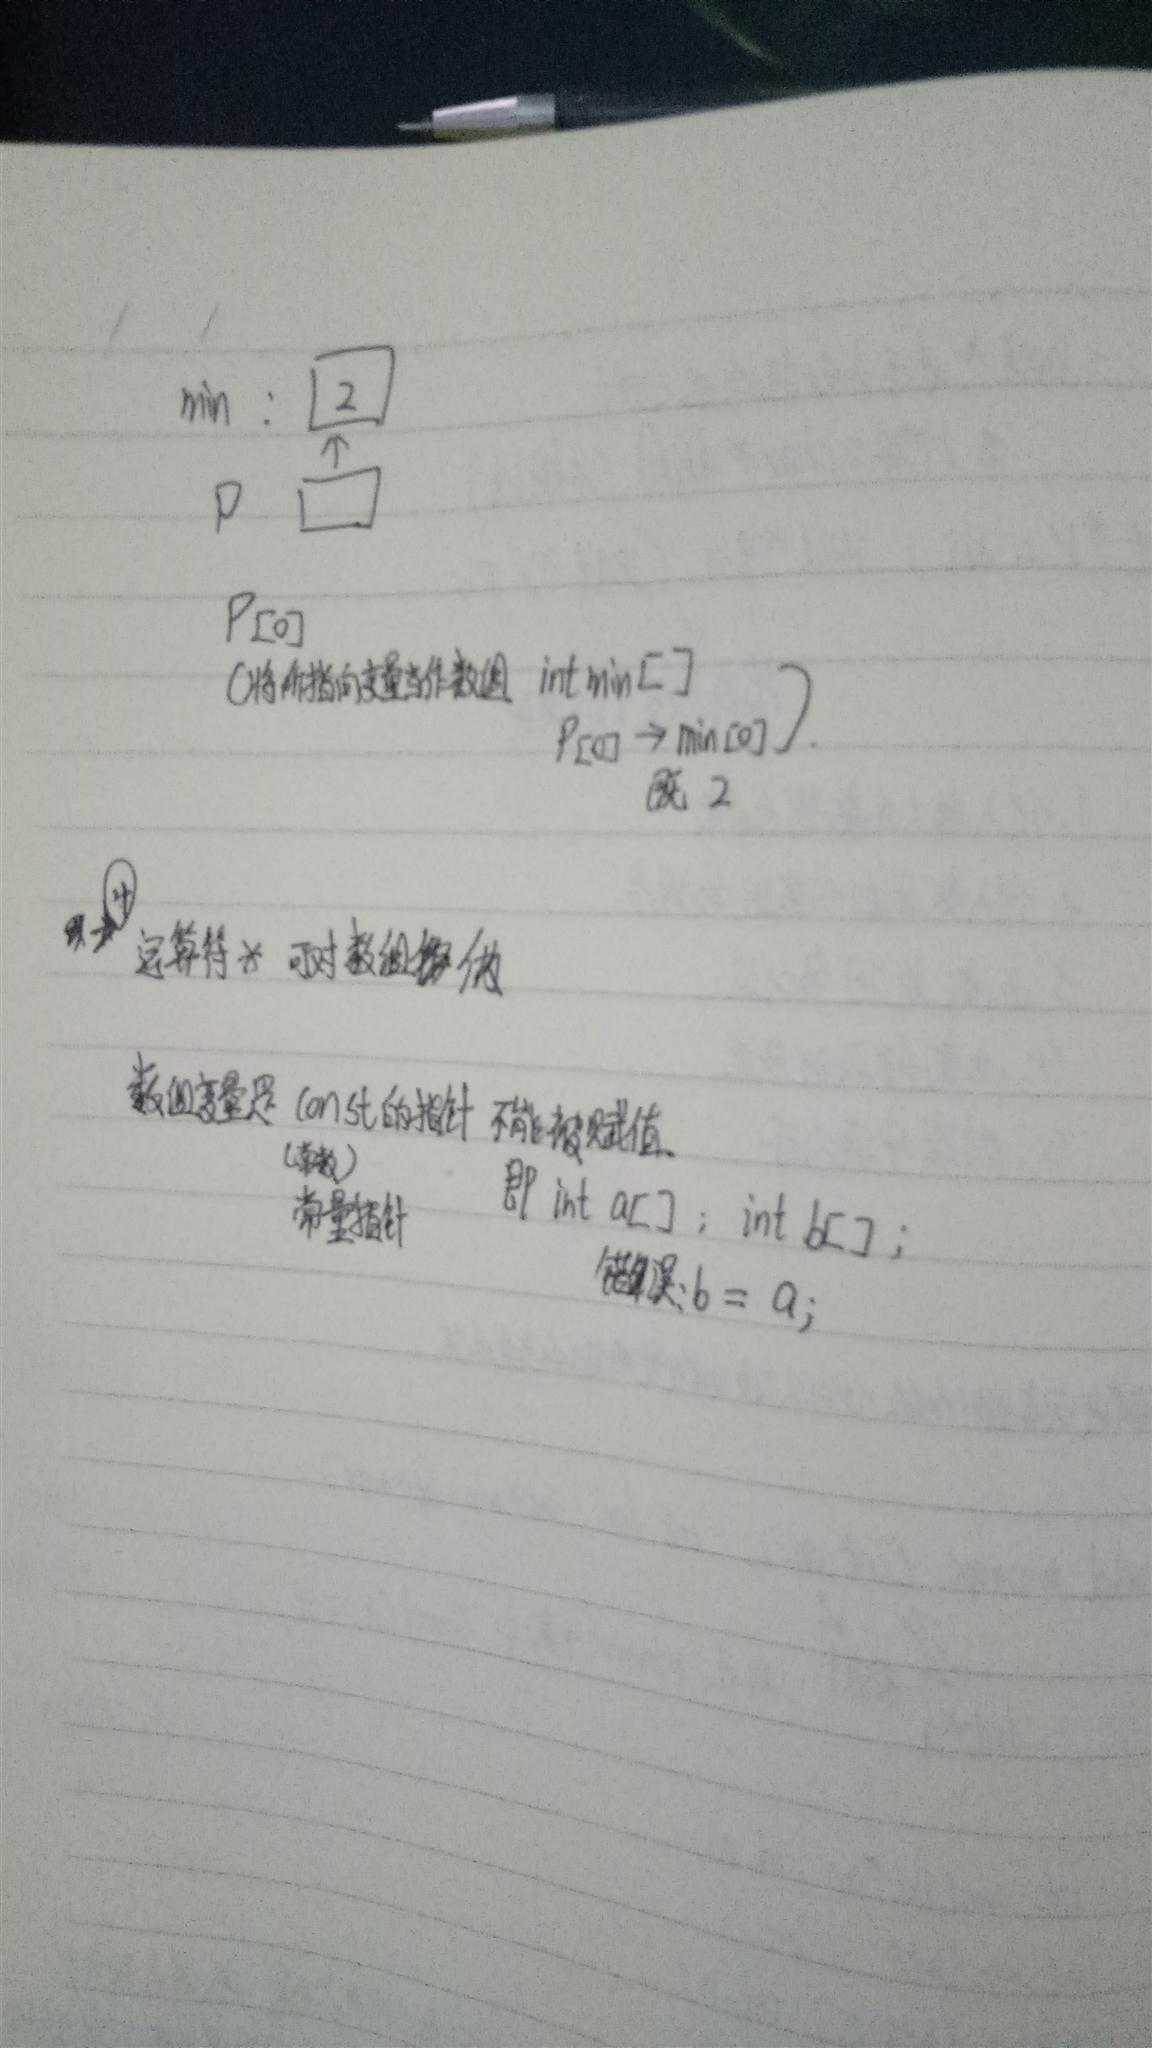 min : 2
p
P[0]
(将所指向变量当作数组 int min[]
P[0] → min[0] ).
既 2
4
运算符* 可对数组做
数组变量是 const的指针 不能被赋值、
(常数)
常量指针
即 int a[] ; int b[] ;
错误: b = a;